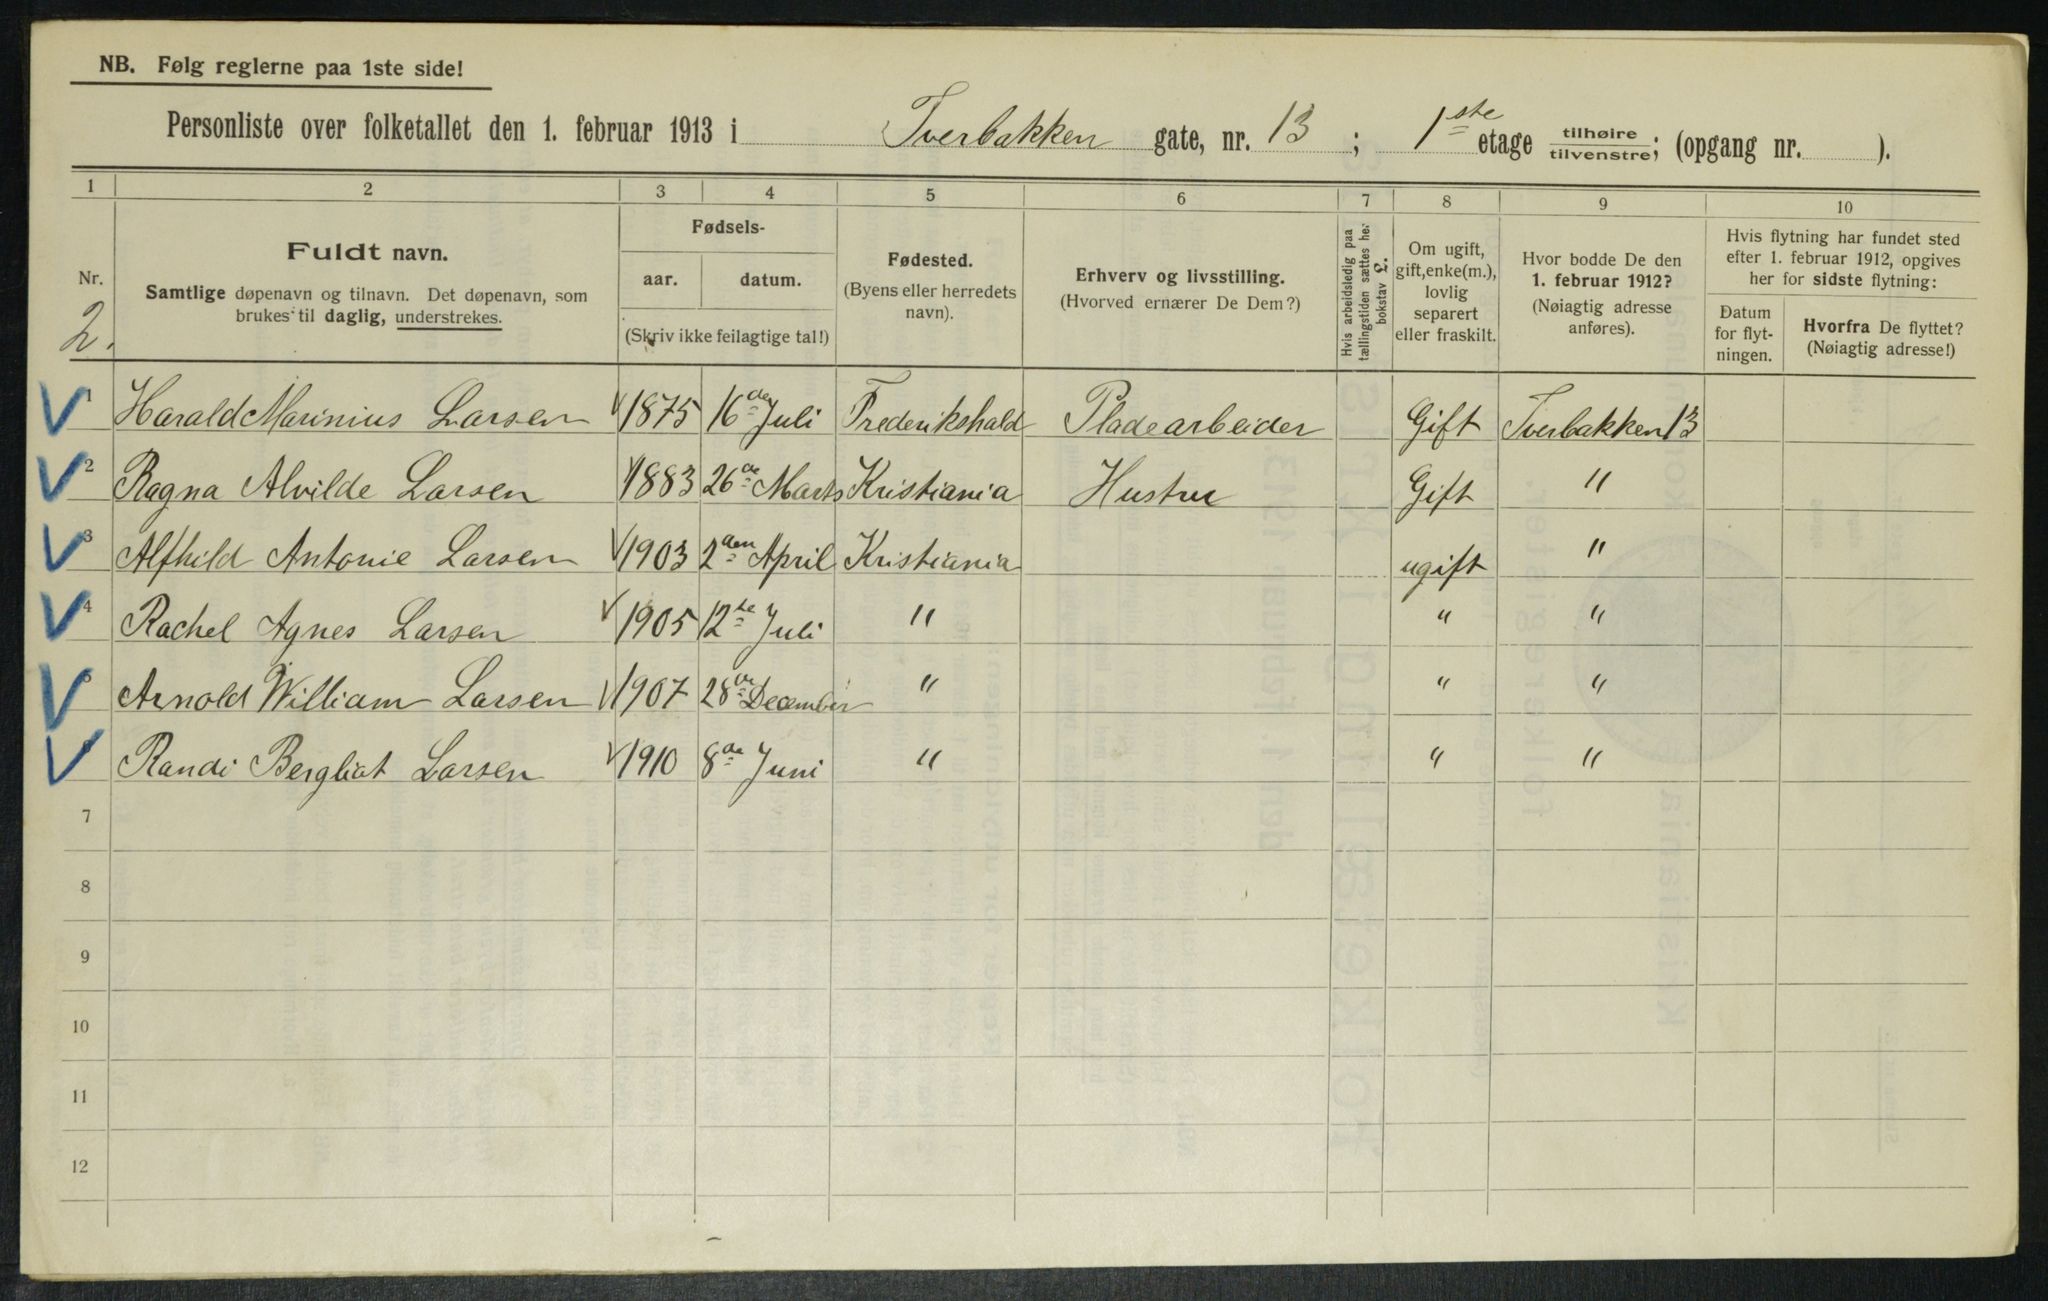 NB. Følg reglerne paa 1ste side!
Personliste over folketallet den 1. februar 1913 i Tverbakken gate, nr. 13; 1ste etage tilhøire/tilvenstre; (opgang nr. ).
1 2 3 4 5 6 7 8 9 10
Nr. 2.
Fuldt navn.
Samtlige døpenavn og tilnavn. Det døpenavn, som
brukes til daglig, understrekes.
Fødsels-
aar. datum.
(Skriv ikke feilagtige tal!)
Fødested.
(Byens eller herredets
navn).
Erhverv og livsstilling.
(Hvorved ernærer De Dem?)
Hvis arbeidsledig paa
tællingstiden sættes her
bokstav £.
Om ugift,
gift, enke(m.),
lovlig
separert
eller fraskilt.
Hvor bodde De den
1. februar 1912?
(Nøiagtig adresse
anføres).
Hvis flytning har fundet sted
efter 1. februar 1912, opgives
her for sidste flytning:
Datum
for flyt-
ningen.
Hvorfra De flyttet?
(Nøiagtig adresse!)
1 Harald Marinius Larsen 1875 16de Juli Frederikshald Pladearbeider Gift Tverbakken 13
2 Ragna Alvilde Larsen 1883 26de Marts Kristiania Hustru Gift "
3 Alfhild Antonie Larsen 1903 2den April Kristiania ugift "
4 Rachel Agnes Larsen 1905 12te Juli " " "
5 Arnold William Larsen 1907 28de December " " "
6 Randi Bergliot Larsen 1910 8de Juni " " "
7
8
9
10
11
12